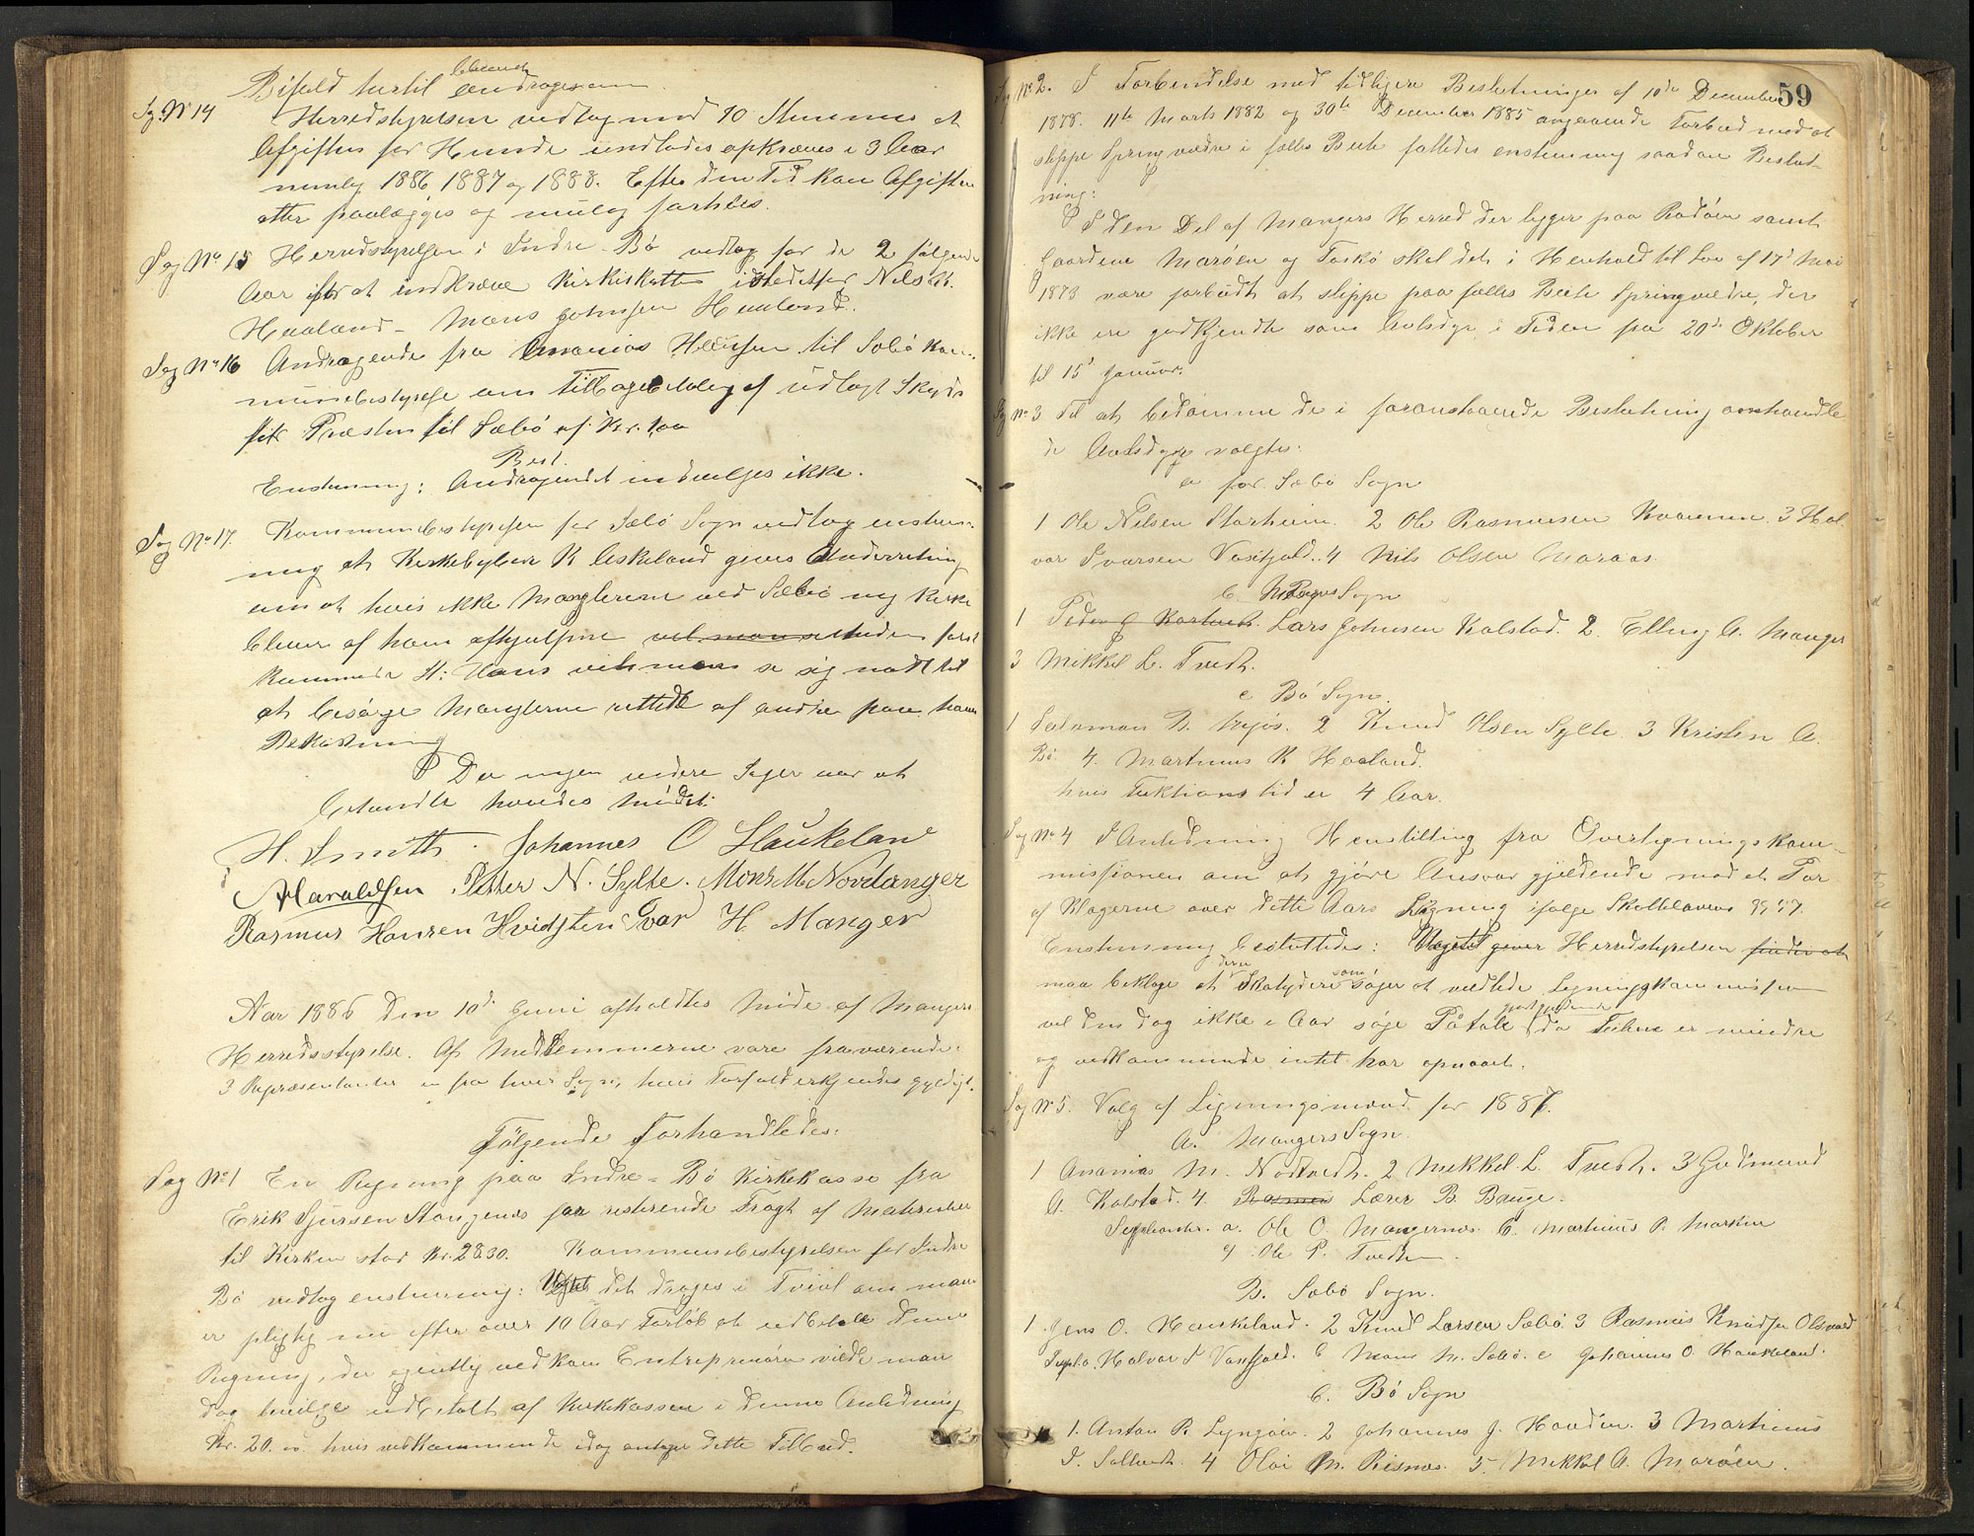 Bifald hertil andrages om
Sag No 14 Herredstyrelsen vedtog med 10 Stemmer at
Afgiften for Hunde undlades opkræves i 3 Aar
nemlig 1886 1887 og 1888. Efter den Tid kan Afgiften
atter paalægges og mulig forhøies.
Sag No 15 Herredstyrelsen i Indre Bø vedtog for de 2 følgende
Aar at indkræve Kirkeskatten istedetfor Nils
Haaland - Mons Johnsen Haaland.
Sag No 16 Andragende fra Ananias Helgesen til Sæbø Kom-
munebestyrelse om Tilbagebetaling af udlagt Skyds
Præsten til Sæbø af Kr.
Best.
Enstemmig: Andragendet indvilges ikke.
Sag No 17. Kommunebestyrelsen for Sæbø Sogn vedtog enstem-
mig at Kirkebygger K Askeland gives Underretning
om at hvis ikke Manglerne ved Sæbø ny Kirke
bliver af ham afhjulpne inden først
kommende St: Hans vil man se sig nødt til
at besørge Manglerne rettede af andre paa hans
Bekostning
Da ingen videre Sager var at
behandle hævedes Mødet.
H. Smith. Johannes O Haukeland
A Haraldsen Peter N. Sylte. Mons M Nordanger
Rasmus Hansen Hvidsten Ivar H. Manger
Aar 1886 Den 10de Juni afholdtes Møde af Mangers
Herredsstyrelse. Af Medlemmerne vare fraværende
3 Repræsentanter en fra hver Sogn, hvis Forfald erkjendes gyldigt.
Følgende Forhandledes:
Sag No 1 En Regning paa Indre-Bø Kirkekasse fra
Erik Sjursen Stangenes for resterende Fragt af Materialier
til Kirken stor Kr. 28.30. Kommunebestyrelsen for Indre
Bø vedtog enstemmig: Uagtet det drages i Tvivl om man
er pligtig nu efter over 10 Aar Forløb at udbetale denne
Regning, der egentlig vedkom Entreprenøren vilde man
dog bevilge udbetalt af Kirkekassen i denne Anledning
Kr. 20.00 hvis vedkommende idag antager dette Tilbud.
59
Sag No 2. I Forbindelse med tidligere Beslutninger af 10de December
1878. 11te Marts 1882 og 30te December 1885 angaaende Forbud mod at
slippe Springvædre i fælles Beite fattedes enstemmig saadan Beslut-
ning:
I den Del af Mangers Herred der ligger paa Radøen samt
Gaardene Marøen og Toskø skal det i Henhold til Lov af 17de Mai
1873 være forbudt at slippe paa fælles Beite Springvædre, der
ikke ere godkjendte som Avlsdyr, i Tiden fra 20de Oktober
til 15de Januar.
Sag No 3 Til at bedømme de i foranstaaende Beslutning omhandle
de Avlsdyr valgtes:
a for Sæbø Sogn
1 Ole Nilsen Storheim 2 Ole Rasmussen Kvammen 3 Hal
vor Ivarsen 4 Nils Olsen Maraas
b. Mangers Sogn
1 Lars Johnsen Kolstad. 2. Elling A. Manger
3 Mikkel L. Tvedt.
c Bø Sogn.
1 Salamon R. 2 Knud Olsen Sylte 3 Kristen A.
Bø 4. Martinus K Haaland.
hvis Funktionstid er 4 Aar.
Sag No 4 I Anledning Henstilling fra Overligningskom-
missionen om at gjøre Ansvar gjeldende mod et Par
af Klagerne over dette Aars Ligning ifølge Skattelovens
Enstemmig besluttedes: Uagtet Herredstyrelsen finder at
maa beklage at Skatydere søger at vildlede Ligningskommissionen
vil den dog ikke i Aar søge Påtale da Feilene er mindre
og vedkommende intet har opnaaet.
Sag No 5. Valg af Ligningsmænd for 1887.
A. Mangers Sogn.
1 Ananias M. Nordvedt. 2 Mikkel L. Tvedt. 3 Gudmund
A. Kolstad. 4 Rasmus Lærer B. Bauge.
Suppleanter. a. Ole O. Mangernes. b. Martinus P. Marken
c Ole P. Tvedten.
B. Sæbø Sogn.
1. Jens O. Haukeland. 2 Knud Larsen Sæbø 3 Rasmus Knudsen
Suppl. a. Halvor I. b Mons M. Sæbø. c Johannes O. Haukeland.
C. Bø Sogn
1. Anton R. 2 Johannes J. 3 Martinus
I. 4 Olai M. Risnes. 5. Mikkel A. Marøen.